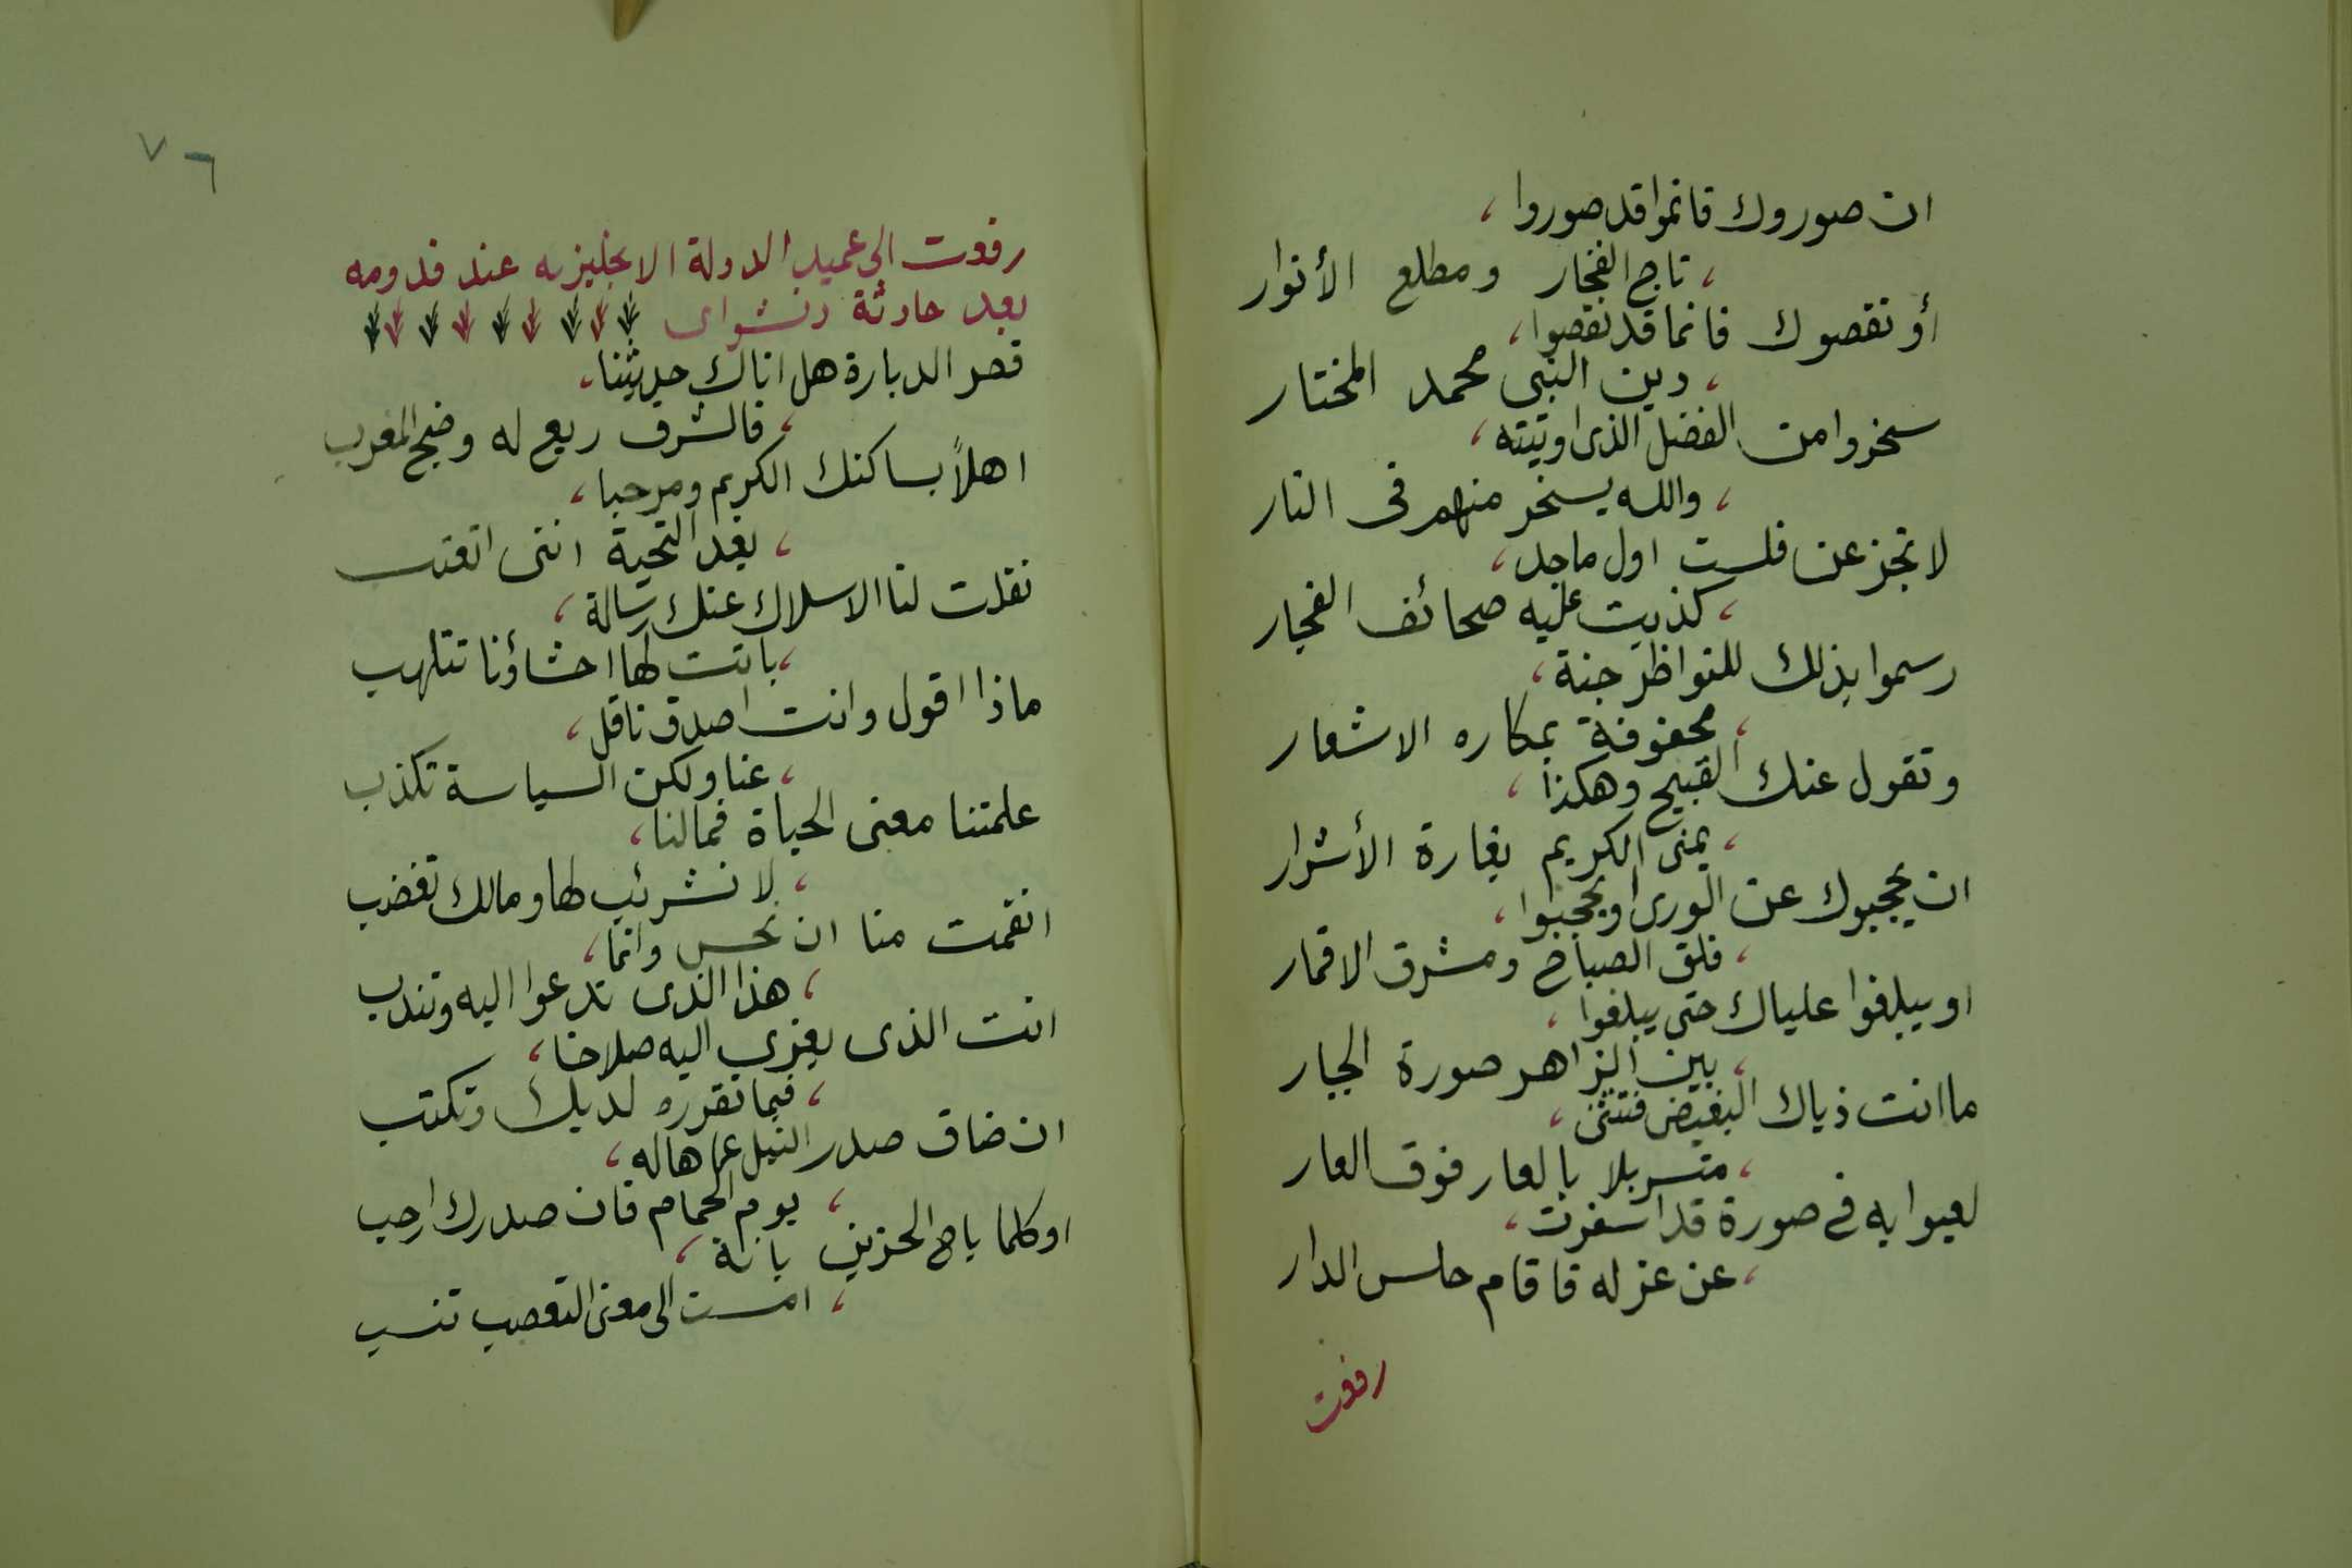 ان صوروك فانما قد صوروا ،
، تاج الفخار ومطلع الأنوار
أو نقصوك فانما قد نقصوا ،
، دين النبى محمد المختار
سخروا من الفضل الذى اوتيته ،
، والله يسخر منهم فى النار
لا تجزعن فلست اول ماجد ،
، كذبت عليه صحائف الفجار
رسموا بذلك للنواظر جنة ،
، محفوفة بمكاره الاشعار
وتقول عنك القبيح وهكذا ،
، يمنى الكريم بغارة الأشرار
ان يحجبوك عن الورى او يحجبوا ،
، فلق الصباح ومشرق الاقمار
او يبلغوا علياك حتى يبلغوا ،
، بين الزاهر صورة الجبار
ما انت ذياك البغيض فتنثنى ،
، متسربلا بالعار فوق العار
لعبوا به فى صورة قد اسفرت ،
، عن عزله فاقام حلس الدار
رفعت
٧٦
رفعت الى عميد الدولة الانجليزيه عند قدومه
بعد حادثة دنشواى
قصر الدبارة هل اتاك حديثنا ،
، فالشرق ريع له وضج المغرب
اهلاً بساكنك الكريم ومرحبا ،
، بعد التحية اننى اتعتب
نقلت لنا الاسلاك عنك رسالة ،
، باتت لها احشاؤنا تتلهب
ماذا اقول وانت اصدق ناقل ،
، عنا ولكن السياسة تكذب
علمتنا معنى الحياة فمالنا ،
، لا نشرئب لها ومالك تغضب
انقمت منا ان نحس وانما ،
، هذا الذى تدعوا اليه وتندب
انت الذى يعزى اليه صلاحنا ،
، فيما تقرره لديك وتكتب
ان ضاق صدر النيل عما هاله ،
، يوم الحمام فان صدرك ارحب
او كلما باح الحزين بانة ،
، امست الى معنى التعصب تنسب